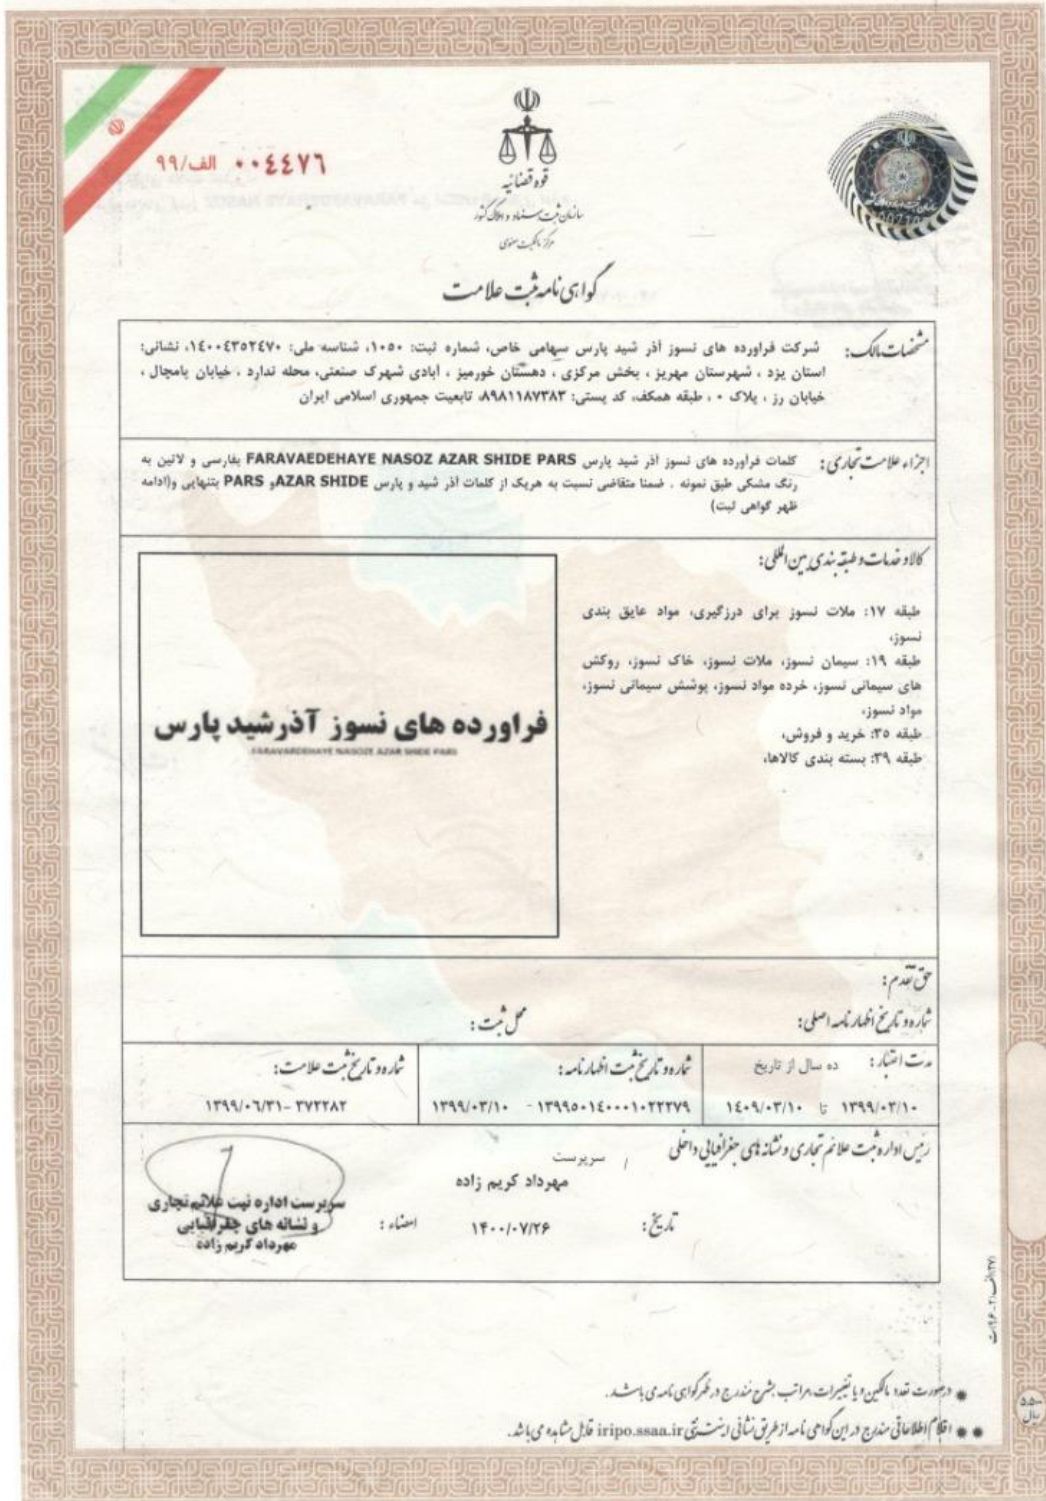 ۰۰٤٤٧٦ الف/۹۹
قوه قضائیه
سازمان ثبت اسناد و املاک کشور
مرکز مالکیت معنوی
گواهی نامه ثبت علامت
مشخصات مالک: شرکت فراورده های نسوز آذر شید پارس سهامی خاص، شماره ثبت: ۱۰۵۰، شناسه ملی: ۱٤۰۰٤۳۵۲٤۷۰، نشانی:
استان یزد ، شهرستان مهریز ، بخش مرکزی ، دهستان خورمیز ، آبادی شهرک صنعتی، محله ندارد ، خیابان پامچال ،
خیابان رز ، پلاک ۰ ، طبقه همکف، کد پستی: ۸۹۸۱۱۸۷۳۸۳، تابعیت جمهوری اسلامی ایران
اجزاء علامت تجاری: کلمات فراورده های نسوز آذر شید پارس FARAVAEDEHAYE NASOZ AZAR SHIDE PARS بفارسی و لاتین به
رنگ مشکی طبق نمونه . ضمنا متقاضی نسبت به هریک از کلمات آذر شید و پارس AZAR SHIDEو PARS بتنهایی و(ادامه
ظهر گواهی ثبت)
کالا و خدمات و طبقه بندی بین المللی:
طبقه ۱۷: ملات نسوز برای درزگیری، مواد عایق بندی
نسوز،
طبقه ۱۹: سیمان نسوز، ملات نسوز، خاک نسوز، روکش
های سیمانی نسوز، خرده مواد نسوز، پوشش سیمانی نسوز،
مواد نسوز،
طبقه ۳۵: خرید و فروش،
طبقه ۳۹: بسته بندی کالاها،
فراورده های نسوز آذرشید پارس
FARAVARDEHAYE NASOZE AZAR SHIDE PARS
حق تقدم:
شماره و تاریخ اظهارنامه اصلی: محل ثبت:
مدت اعتبار: ده سال از تاریخ
۱۳۹۹/۰۳/۱۰ تا ۱٤۰۹/۰۳/۱۰
شماره و تاریخ ثبت اظهارنامه:
۱۳۹۹۵۰۱٤۰۰۰۱۰۲۲۲۷۹ - ۱۳۹۹/۰۳/۱۰
شماره و تاریخ ثبت علامت:
۳۷۲۲۸۲ - ۱۳۹۹/۰٦/۳۱
رئیس اداره ثبت علائم تجاری و نشانه های جغرافیایی داخلی / سرپرست
مهرداد کریم زاده
تاریخ: ۱۴۰۰/۰۷/۲۶ امضاء:
سرپرست اداره ثبت علائم تجاری
و نشانه های جغرافیایی
مهرداد کریم زاده
درصورت تعدد مالکین و یا تغییرات، مراتب بشرح مندرج در ظهر گواهی نامه می باشد.
اقلام اطلاعاتی مندرج در این گواهی نامه از طریق نشانی اینترنتی iripo.ssaa.ir قابل مشاهده می باشد.